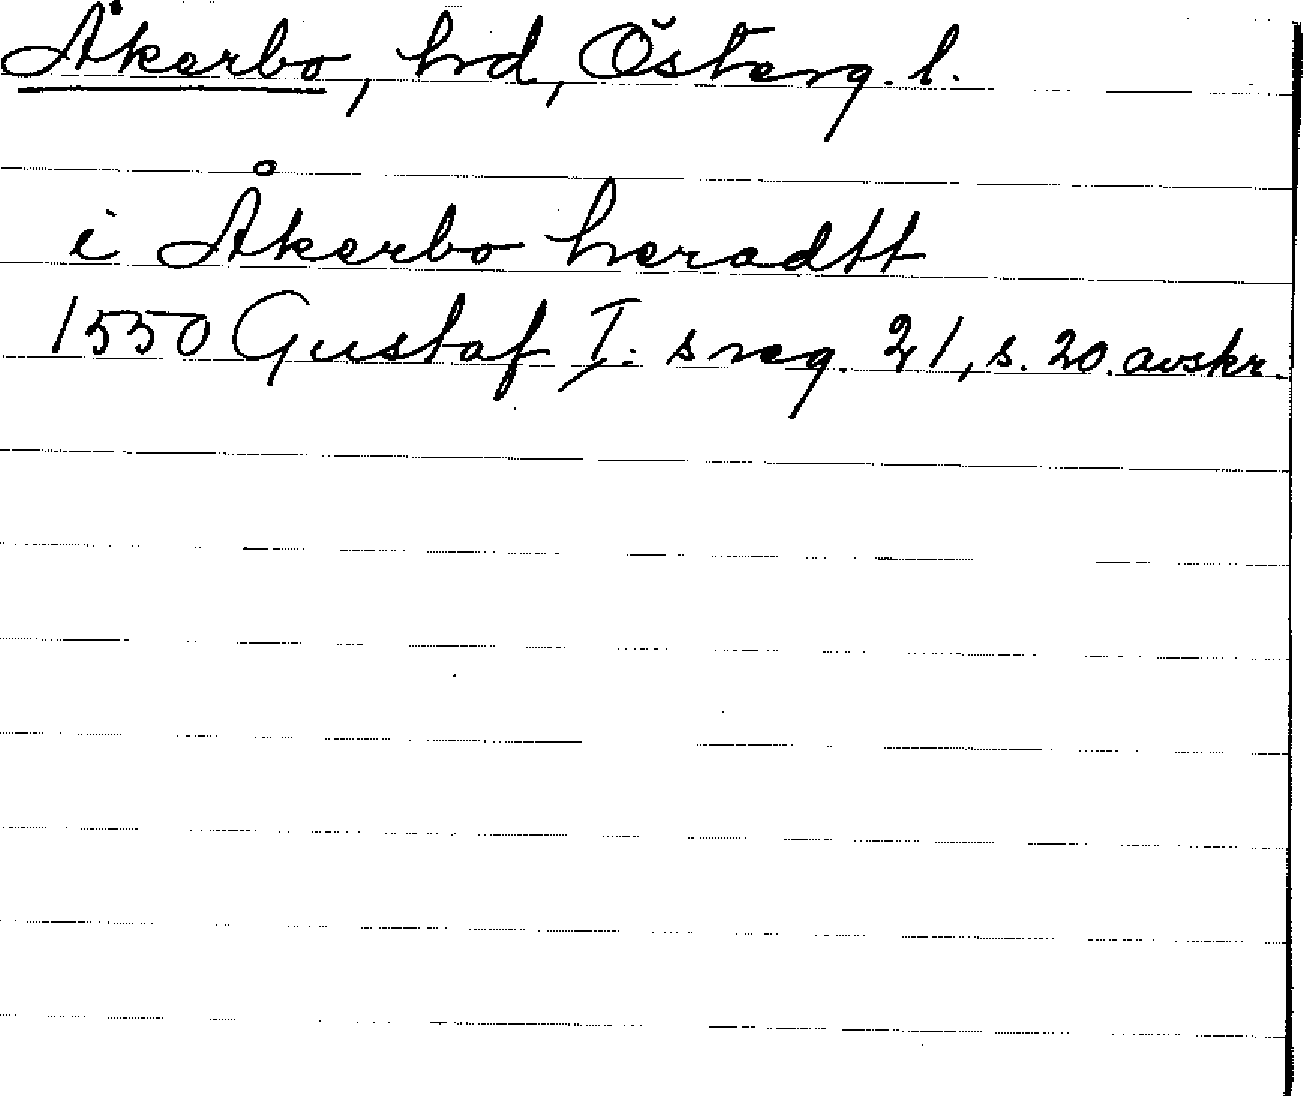 Åkerbo, hrd, Österg. l.
i Åkerbo heradtt
1550 Gustaf I:s reg. 21, s. 20. avskr.